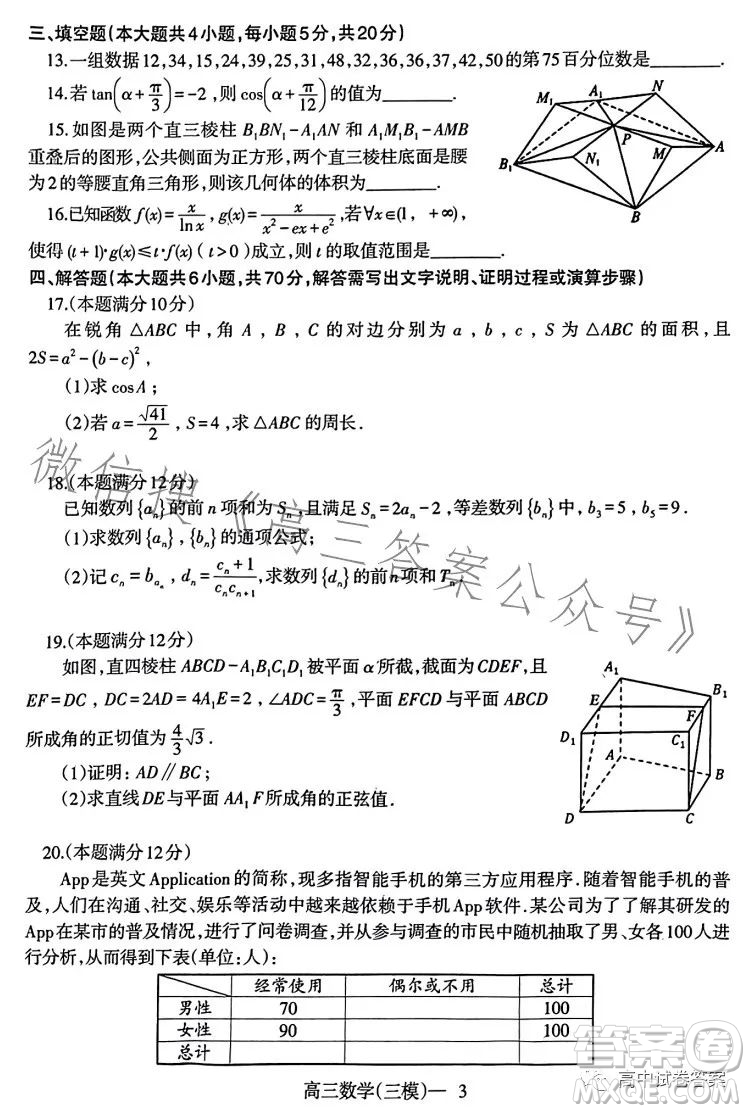 三、填空题(本大题共4小题,每小题5分,共20分)
13.一组数据12,34,15,24,39,25,31,48,32,36,36,37,42,50的第75百分位数是________.
14.若tan(α+π/3)=-2,则cos(α+π/12)的值为________.
15.如图是两个直三棱柱B₁BN₁-A₁AN和A₁M₁B₁-AMB
重叠后的图形,公共侧面为正方形,两个直三棱柱底面是腰
为2的等腰直角三角形,则该几何体的体积为________.
M₁ A₁ N P B₁ N₁ M A B
16.已知函数f(x)=x/lnx,g(x)=x/(x²-ex+e²),若∀x∈(1,+∞),
使得(t+1)·g(x)≤t·f(x)(t>0)成立,则t的取值范围是________.
四、解答题(本大题共6小题,共70分,解答需写出文字说明、证明过程或演算步骤)
17.(本题满分10分)
在锐角△ABC中,角A,B,C的对边分别为a,b,c,S为△ABC的面积,且
2S=a²-(b-c)²,
(1)求cosA;
(2)若a=√41/2,S=4,求△ABC的周长.
18.(本题满分12分)
已知数列{aₙ}的前n项和为Sₙ,且满足Sₙ=2aₙ-2,等差数列{bₙ}中,b₃=5,b₅=9.
(1)求数列{aₙ},{bₙ}的通项公式;
(2)记cₙ=b_{aₙ},dₙ=(cₙ+1)/(cₙcₙ₊₁),求数列{dₙ}的前n项和Tₙ
19.(本题满分12分)
如图,直四棱柱ABCD-A₁B₁C₁D₁被平面α所截,截面为CDEF,且
EF=DC,DC=2AD=4A₁E=2,∠ADC=π/3,平面EFCD与平面ABCD
所成角的正切值为4/3√3.
(1)证明:AD∥BC;
(2)求直线DE与平面AA₁F所成角的正弦值.
A₁ B₁ E F D₁ C₁ A B D C
20.(本题满分12分)
App是英文Application的简称,现多指智能手机的第三方应用程序.随着智能手机的普
及,人们在沟通、社交、娱乐等活动中越来越依赖于手机App软件.某公司为了了解其研发的
App在某市的普及情况,进行了问卷调查,并从参与调查的市民中随机抽取了男、女各100人进
行分析,从而得到下表(单位:人):
经常使用 偶尔或不用 总计
男性 70 100
女性 90 100
总计
高三数学(三模)— 3
微信搜《高三答案公众号》
答案圈
高中试卷答案